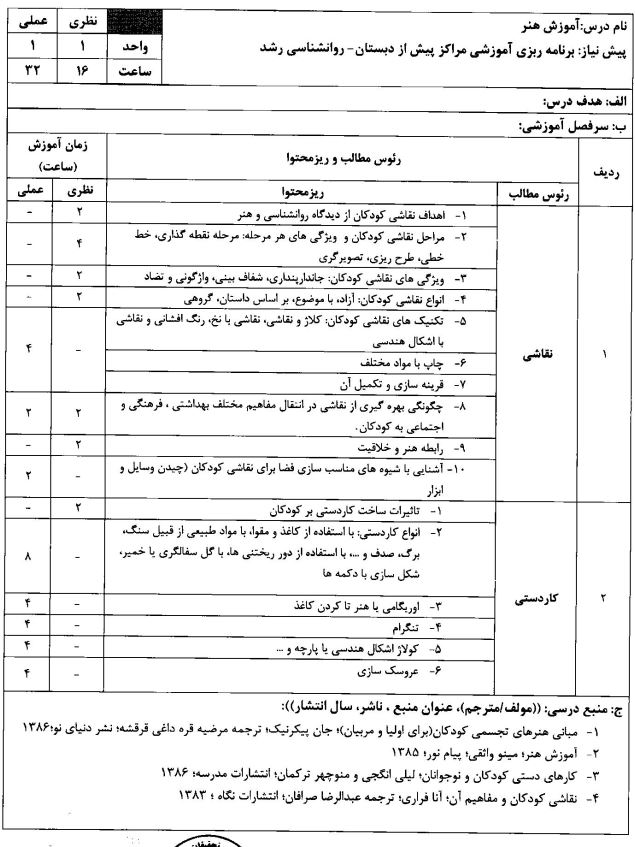 نام درس: آموزش هنر
پیش نیاز: برنامه ریزی آموزشی مراکز پیش از دبستان- روانشناسی رشد
نظری عملی
واحد ۱ ۱
ساعت ۱۶ ۳۲
الف: هدف درس:
ب: سرفصل آموزشی:
ردیف
رئوس مطالب و ریزمحتوا
زمان آموزش
(ساعت)
رئوس مطالب ریزمحتوا نظری عملی
۱
نقاشی
۱- اهداف نقاشی کودکان از دیدگاه روانشناسی و هنر ۲ -
۲- مراحل نقاشی کودکان و ویژگی های هر مرحله: مرحله نقطه گذاری، خط
خطی، طرح ریزی، تصویرگری ۴ -
۳- ویژگی های نقاشی کودکان: جاندارپنداری، شفاف بینی، واژگونی و تضاد ۲ -
۴- انواع نقاشی کودکان: آزاد، با موضوع، بر اساس داستان، گروهی ۲ -
۵- تکنیک های نقاشی کودکان: کلاژ و نقاشی، نقاشی با نخ، رنگ افشانی و نقاشی
با اشکال هندسی - ۴
۶- چاپ با مواد مختلف
۷- قرینه سازی و تکمیل آن
۸- چگونگی بهره گیری از نقاشی در انتقال مفاهیم مختلف بهداشتی ، فرهنگی و
اجتماعی به کودکان. ۲ ۲
۹- رابطه هنر و خلاقیت ۲ -
۱۰- آشنایی با شیوه های مناسب سازی فضا برای نقاشی کودکان (چیدن وسایل و
ابزار - ۲
۲
کاردستی
۱- تاثیرات ساخت کاردستی بر کودکان ۲ -
۲- انواع کاردستی: با استفاده از کاغذ و مقوا، با مواد طبیعی از قبیل سنگ،
برگ، صدف و ...، با استفاده از دور ریختنی ها، با گل سفالگری یا خمیر،
شکل سازی با دکمه ها - ۸
۳- اوریگامی یا هنر تا کردن کاغذ - ۴
۴- تنگرام - ۴
۵- کولاژ اشکال هندسی یا پارچه و ... - ۴
۶- عروسک سازی - ۴
ج: منبع درسی: ((مولف/مترجم)، عنوان منبع ، ناشر، سال انتشار)):
۱- مبانی هنرهای تجسمی کودکان(برای اولیا و مربیان)؛ جان پیکرنیک؛ ترجمه مرضیه قره داغی قرقشه؛ نشر دنیای نو؛۱۳۸۶
۲- آموزش هنر؛ مینو واثقی؛ پیام نور؛ ۱۳۸۵
۳- کارهای دستی کودکان و نوجوانان؛ لیلی انگجی و منوچهر ترکمان؛ انتشارات مدرسه؛ ۱۳۸۶
۴- نقاشی کودکان و مفاهیم آن؛ آنا فراری؛ ترجمه عبدالرضا صرافان؛ انتشارات نگاه ؛ ۱۳۸۳